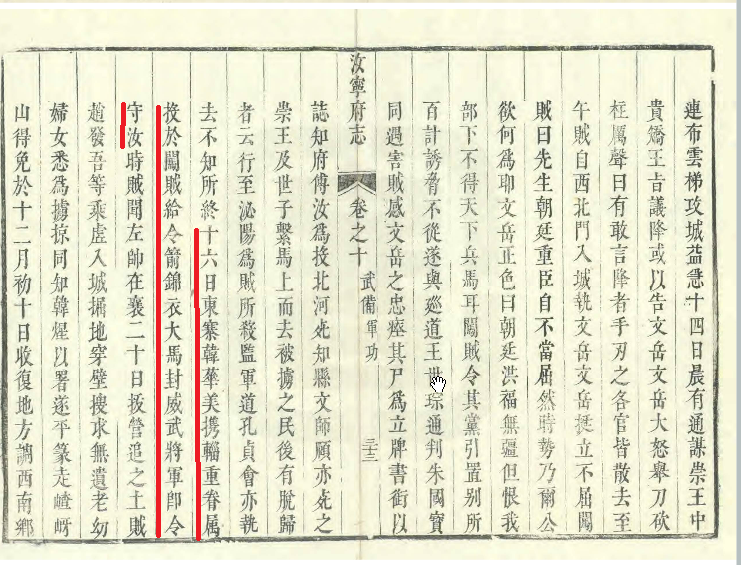 連布雲梯攻城益急十四日晨有通謀崇王中
貴矯王旨議降或以告文岳文岳大怒舉刀砍
柱厲聲曰有敢言降者手刃之各官皆散去至
午賊自西北門入城執文岳文岳挺立不屈闖
賊曰先生朝廷重臣自不當屈然時勢乃爾公
欲何爲耶文岳正色曰朝廷洪福無疆但恨我
部下不得天下兵馬耳闖賊令其黨引置别所
百計誘脅不從遂與廵道王世琮通判朱國寶
同遇害賊感文岳之忠瘞其尸爲立牌書銜以
汝寧府志
卷之十
武備軍功
三十三
誌知府傅汝爲投北河死知縣文師頤亦死之
崇王及世子繫馬上而去被擄之民後有脫歸
者云行至泌陽爲賊所殺監軍道孔貞會亦執
去不知所終十六日東寨韓華美携輜重眷属
投於闖賊給令箭錦衣大馬封威武將軍卽令
守汝時賊聞左帥在襄二十日拔營追之土賊
趙發吾等乘虚入城掘地穿壁搜求無遺老幼
婦女悉爲擄掠同知韓煋以署遂平篆走嵖岈
山得免於十二月初十日收復地方調西南鄉